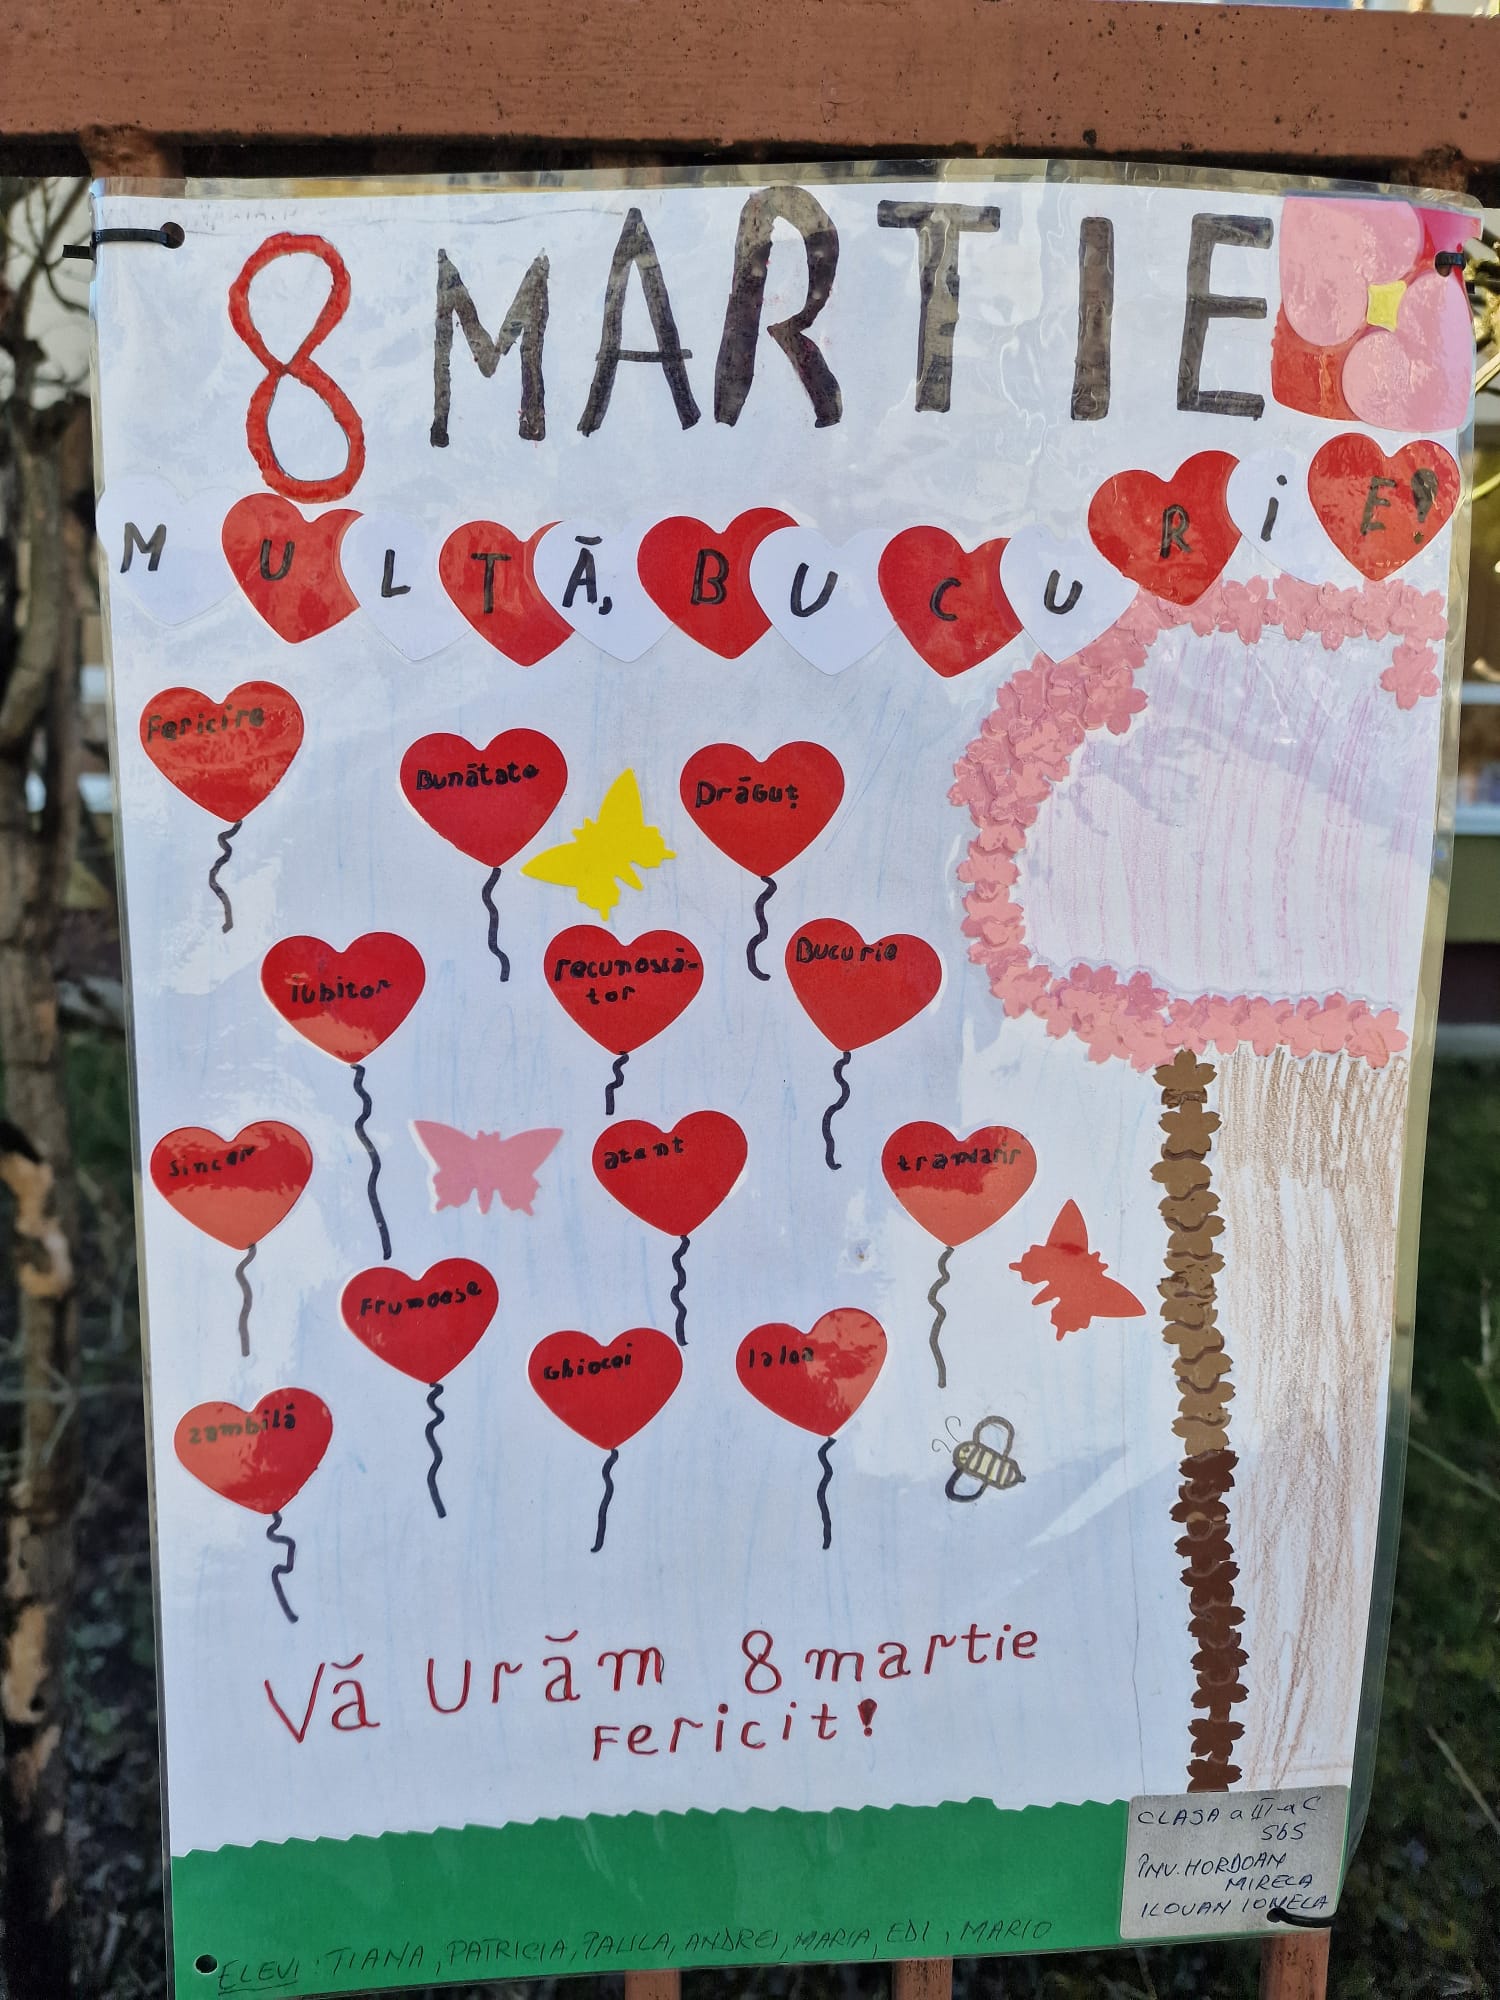 8 MARTIE
MULTĂ, BUCURiE!
Fericire
Bunătate
Drăguț
Iubitor
recunoscă-
tor
Bucurie
sincer
atent
trandafir
Frumoase
Ghiocei
lalea
zambilă
Vă urăm 8 martie
Fericit!
CLASA a III-a C
SbS
ÎNV. HORDOAN
MIRELA
ILOVAN IONELA
ELEVI: TIANA, PATRICIA, PAULA, ANDREI, MARIA, EDI, MARIO